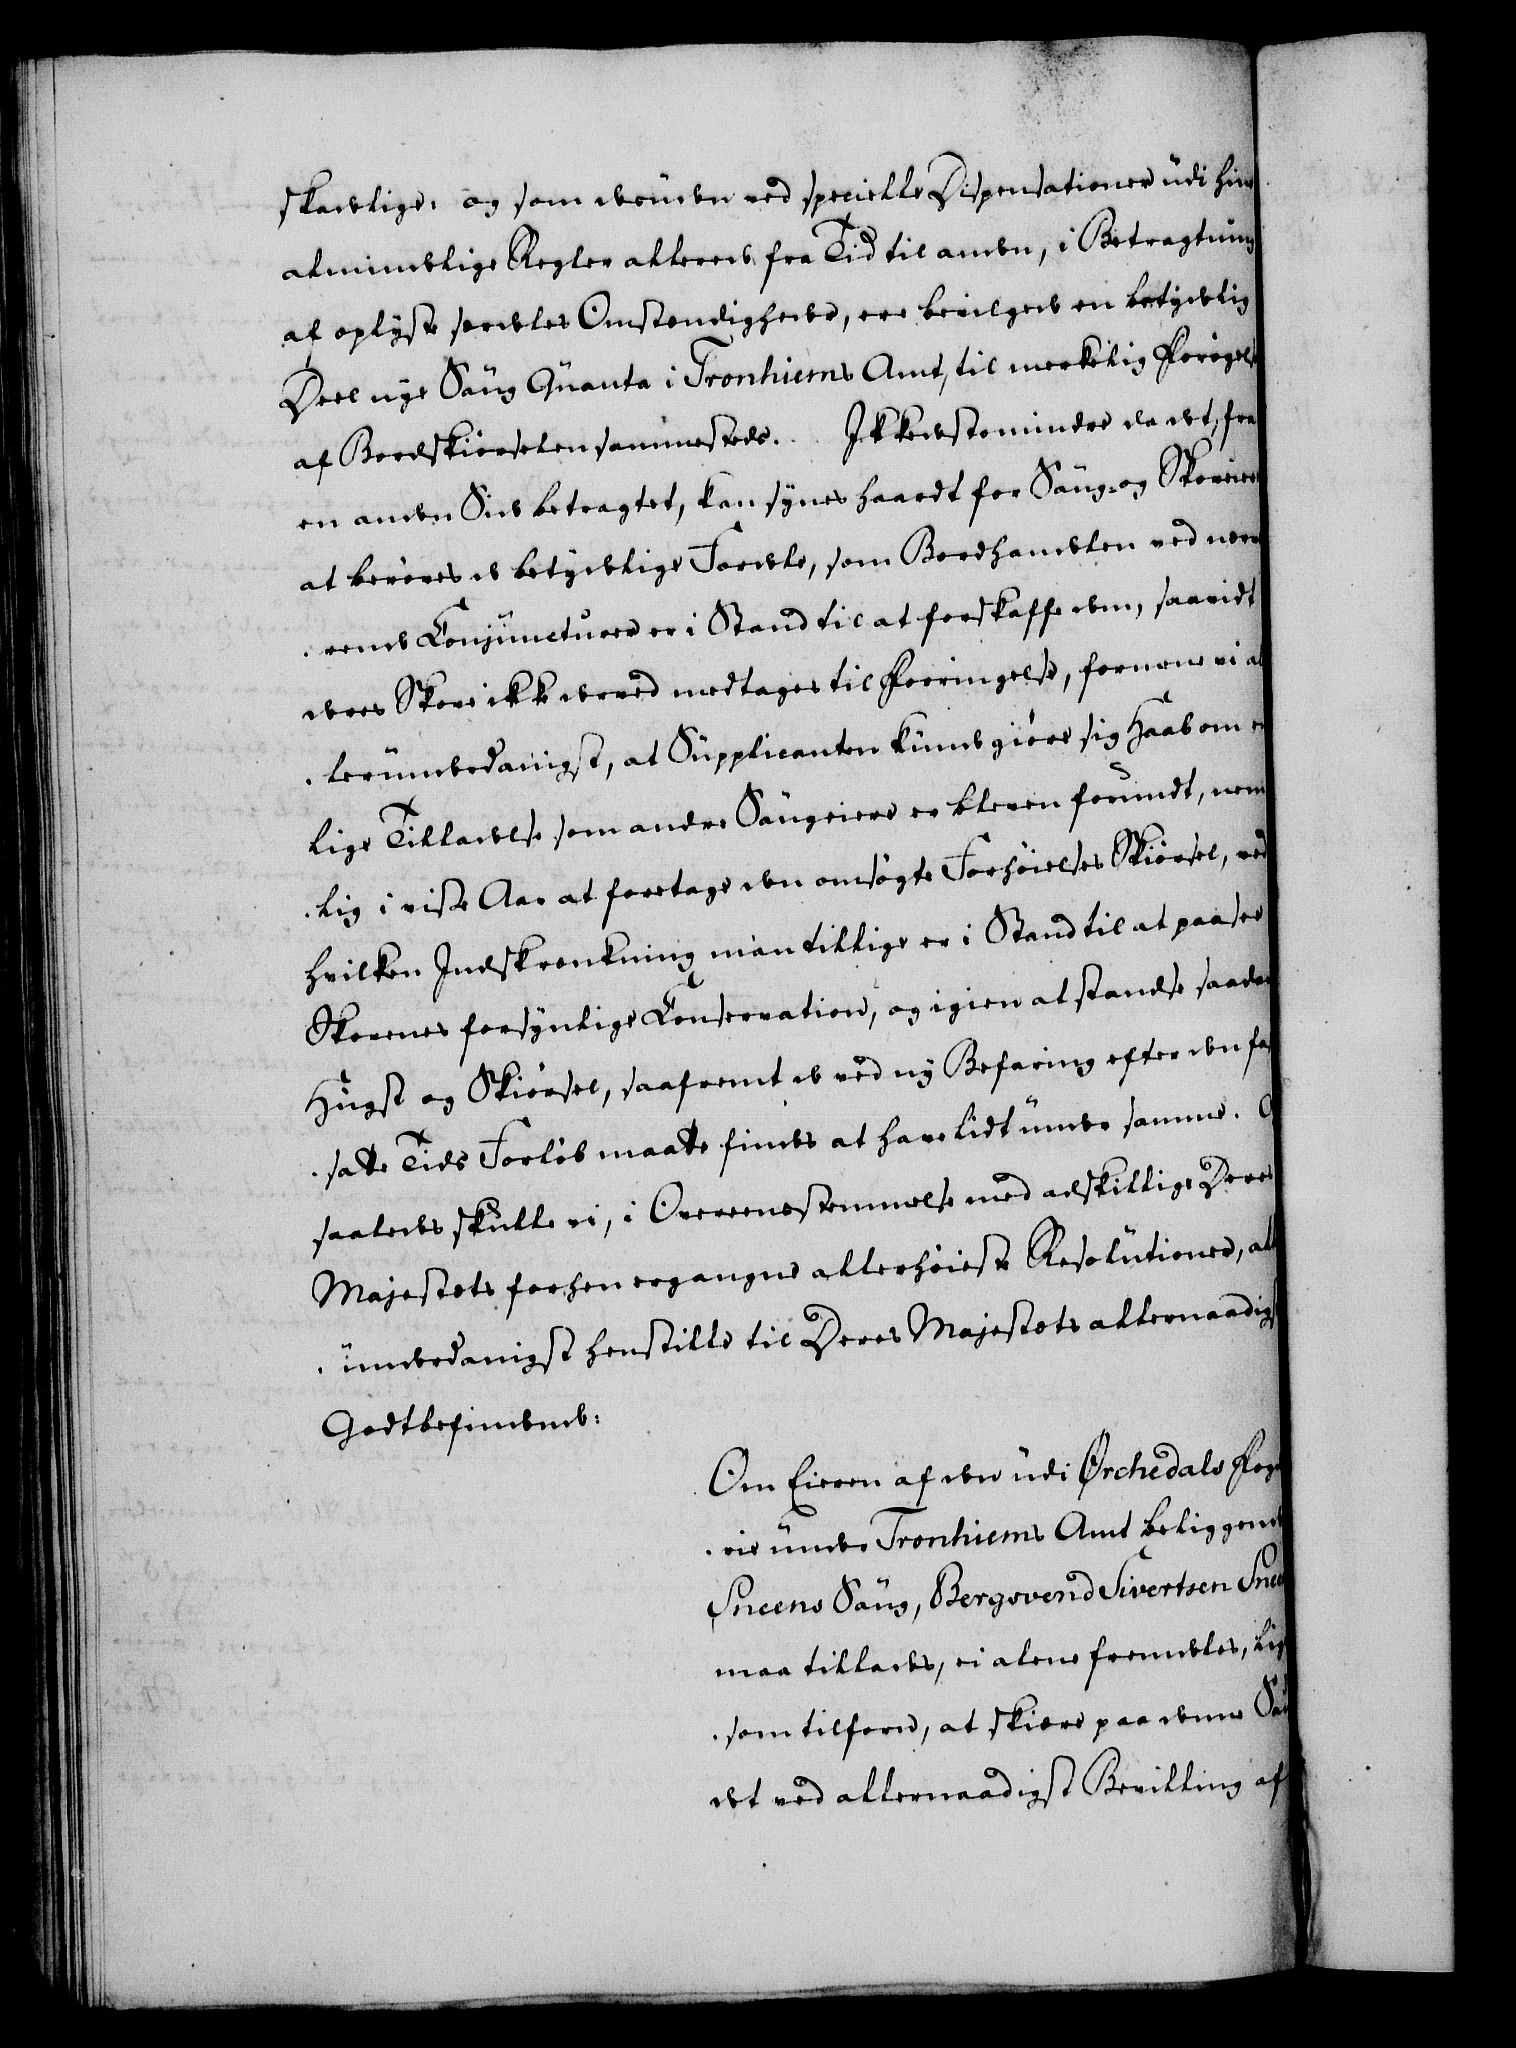 skadelige, og som desuden ved specielle Dispensationer udi hine
almindelige Regler allerede fra Tid til anden, i Betragtning
af oplyste særdeles Omstændigheder, ere bevilgede en betydelig
Deel nye Saug Qvanta i Tronhiems Amt, til merkelig Forøgelse
af Bordskiørselen sammesteds. Ikkedestomindre da det, fra
en anden Side betragtet, kan synes haardt for Saug- og Skoveiere
at berøves de betydelige Fordele, som Bordhandelen ved nær-
værende Conjuncturer er i Stand til at forskaffe dem, saavidt
deres Skove ikke derved medtages til Forringelse, formene vi al-
lerunderdanigst, at Supplicanten kunde giøre sig Haab om
lige Tilladelse som andre Saugeiere er bleven forundt, nem-
lig i visse Aar at foretage den omsøgte Forhøielses Skiørsel, ved
hvilken Indskrænkning man tillige er i Stand til at paasee
Skovenes forsynlige Conservation, og igien at standse saadan
Hugst og Skiørsel, saafremt de ved ny Befaring efter den fast-
satte Tids Forløb maatte findes at have lidt under samme.
saaledes skulle vi, i Overeensstemmelse med adskillige Deres
Majestæts forhen ergangne allerhøieste Resolutioner, aller-
underdanigst henstille til Deres Majestæts allernaadigste
Godtbefindende:
Om Eieren af den udi Ørchedals Fog-
derie under Tronhiems Amt beliggende
Sneens Saug, Bergsvend Sivertsen Sneen
maa tillades, ei alene fremdeles, lige-
som tilforn, at skiære paa denne Saug
det ved allernaadigst Bevilling af